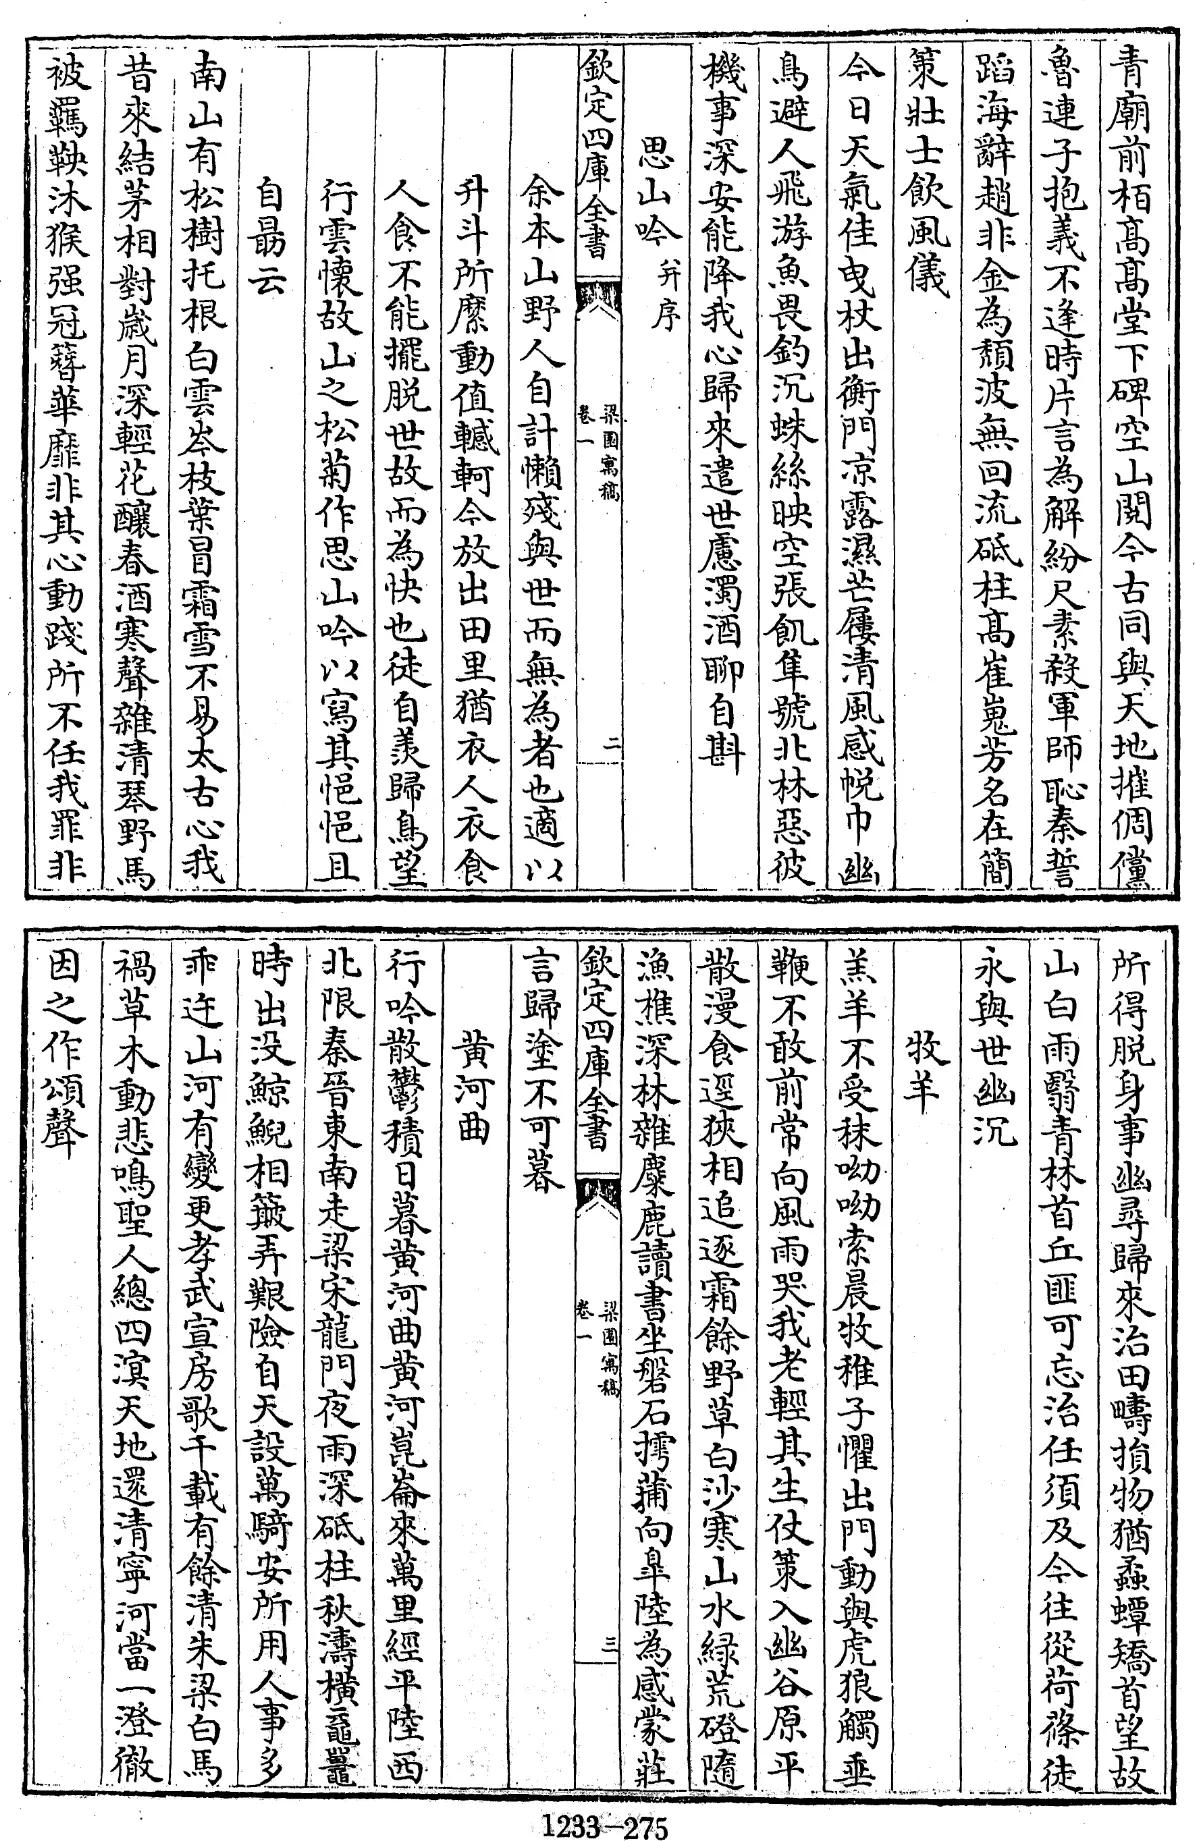 青廟前栢髙髙堂下碑空山閱今古同與天地摧倜儻
魯連子抱義不逢時片言為解紛尺素殺軍師恥秦誓
蹈海辭趙非金為頽波無回流砥柱髙崔嵬芳名在簡
策壯士飲風儀
今日天氣佳曳杖出衡門凉露濕芒屨清風感帨巾幽
鳥避人飛游魚畏鈎沉蛛絲映空張飢隼號北林惡彼
機事深安能降我心歸來遣世慮濁酒聊自斟
思山吟 并序
欽定四庫全書 梁園寓稿 卷一 二
余本山野人自計懶殘與世而無為者也適以
升斗所縻動值轗軻今放出田里猶衣人衣食
人食不能擺脱世故而為快也徒自羡歸鳥望
行雲懷故山之松菊作思山吟以寫其悒悒且
自朂云
南山有松樹托根白雲岑枝葉冒霜雪不易太古心我
昔來結茅相對歲月深輕花釀春酒寒聲雜清琴野馬
被羈鞅沐猴强冠簪華靡非其心動踐所不任我罪非
所得脱身事幽尋歸來治田疇損物猶蟊蟫矯首望故
山白雨翳青林首丘匪可忘治任須及今往從荷蓧徒
永與世幽沉
牧羊
羔羊不受秣呦呦索晨牧稚子懼出門動與虎狼觸垂
鞭不敢前常向風雨哭我老輕其生仗策入幽谷原平
散漫食逕狹相追逐霜餘野草白沙寒山水緑荒磴隨
漁樵深林雜麋鹿讀書坐磐石摴蒱向臯陸為感蒙莊
欽定四庫全書 梁園寓稿 卷一 三
言歸塗不可暮
黄河曲
行吟散鬱積日暮黄河曲黄河崑崙來萬里經平陸西
北限秦晉東南走梁宋龍門夜雨深砥柱秋濤橫黿鼉
時出没鯨鯢相簸弄艱險自天設萬騎安所用人事多
乖迕山河有變更孝武宣房歌千載有餘清朱梁白馬
禍草木動悲鳴聖人總四溟天地還清寧河當一澄徹
因之作頌聲
1233-275